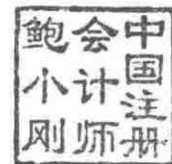 中国注册
会计师
鲍小刚